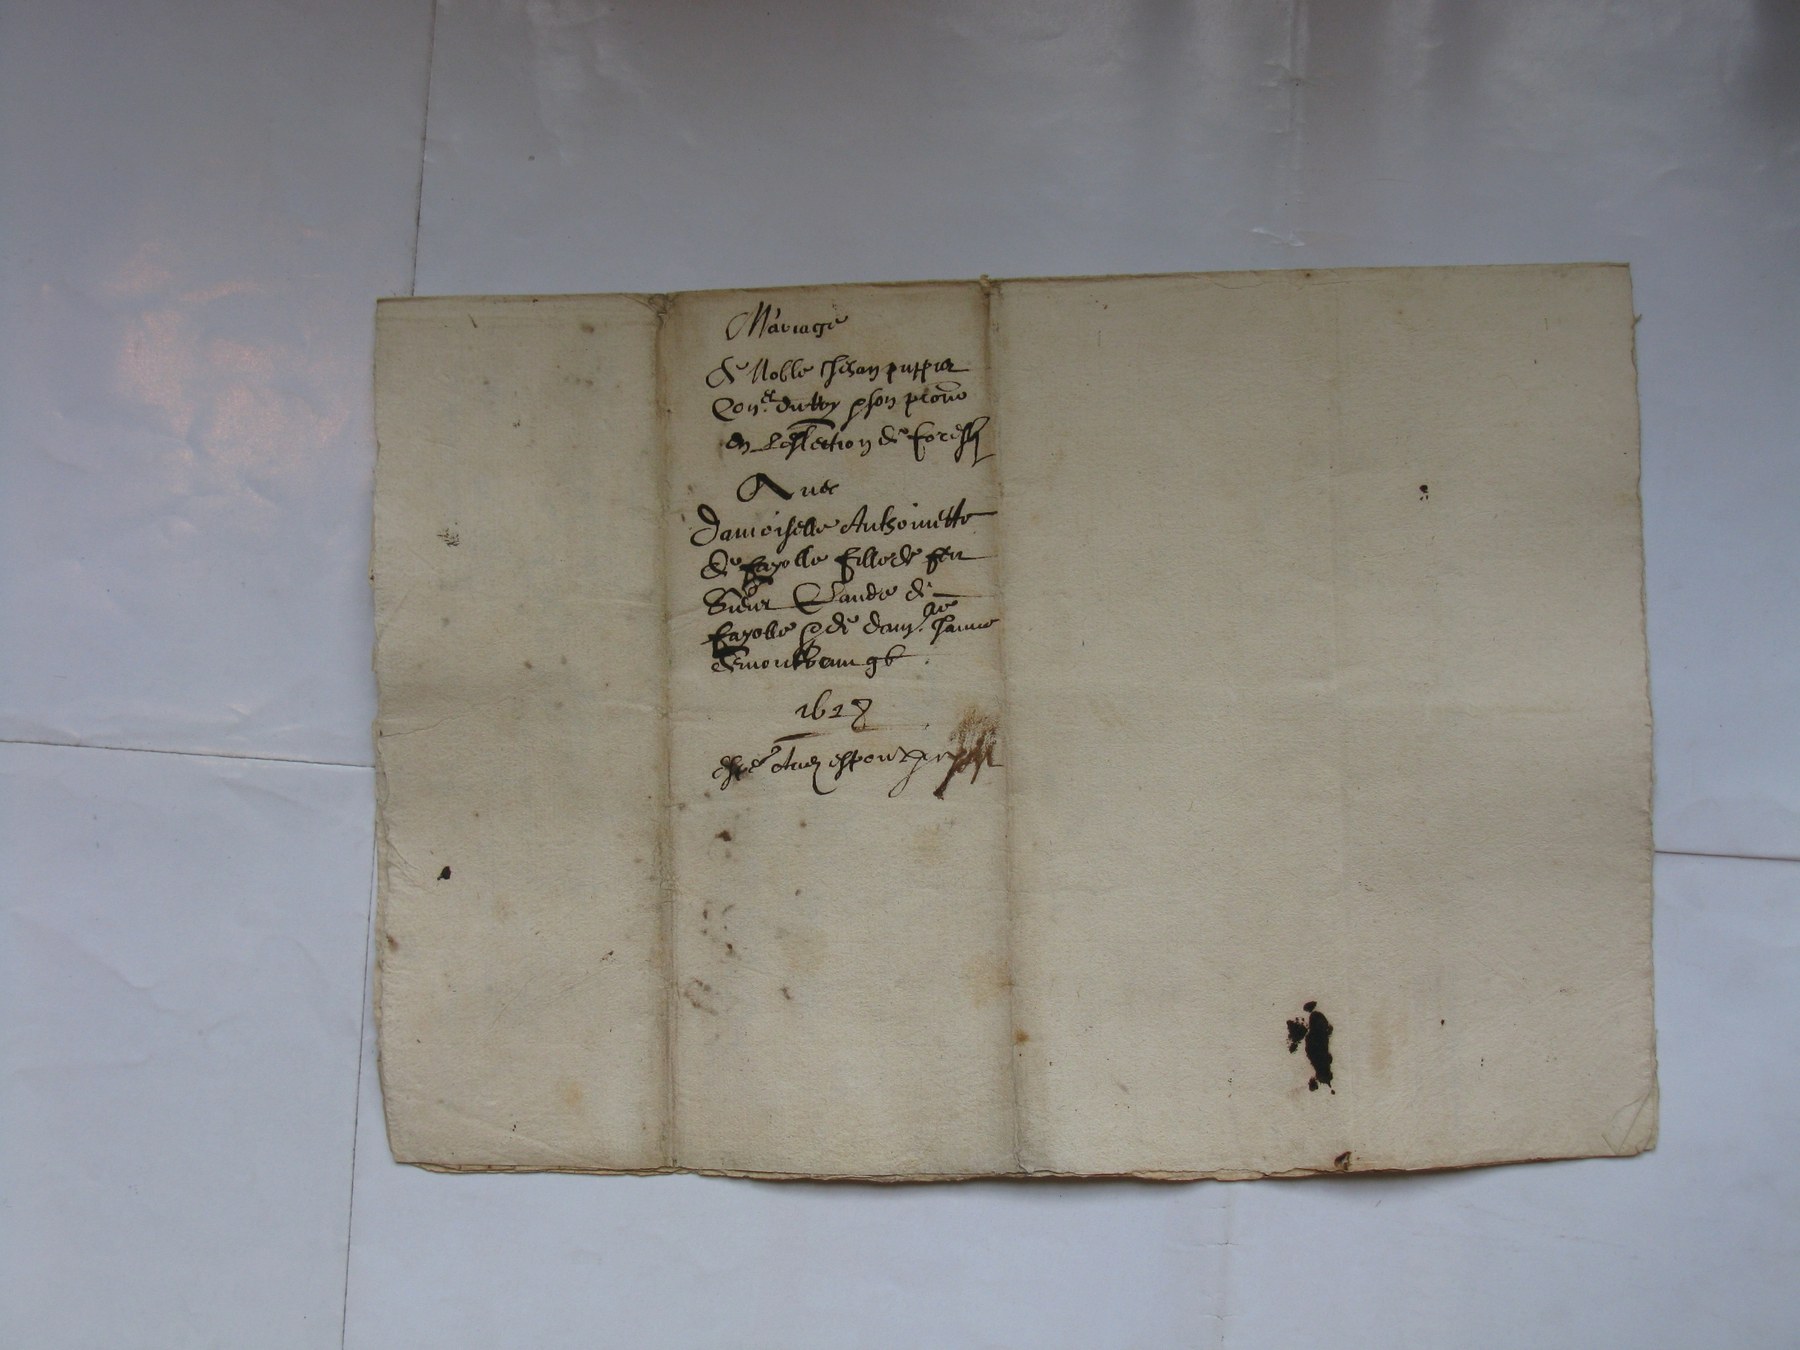 Mariage
de Noble Jehan puppier
Con.er du Roy & son
en Leslection de forestz
Avec
Damoiselle Anthoinette
de fayolle fille de feu
Sieur Claude de
fayolle & de dam.lle Janne
1627